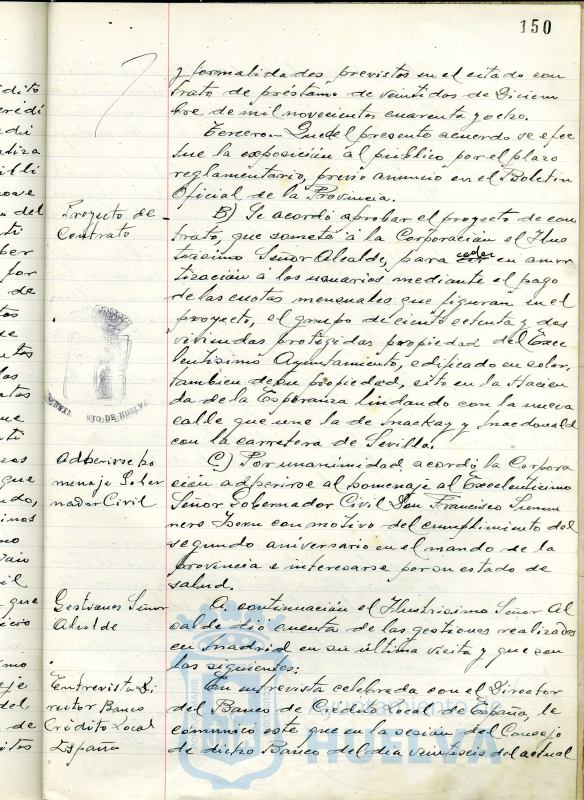 150
y formalidades previstos en el citado con
trato de préstamo de veintidos de Diciem
bre de mil novecientos cuarenta y ocho.
Tercero = Que el presente acuerdo se efec
tue la exposición al publico por el plazo
reglamentario, previo anuncio en el Boletin
Oficial de la Provincia.
Proyecto de
Contrato
B) Se acordó aprobar el proyecto de con
trato, que somete á la Corporación el Ilus
trisimo Señor Alcalde, para ceder en amor
tización á los usuarios mediante el pago
de las cuotas mensuales que figuran en el
proyecto, el grupo de ciento setenta y dos
viviendas protegidas propiedad del Exce
lentisimo Ayuntamiento, edificado en solar,
tambien de su propiedad, sito en la Hacien
da de la Esperanza lindando con la nueva
calle que une la de Mackay y Macdonald
con la carretera de Sevilla.
AYUNTAMIENTO DE HUELVA
Adherirse ho
menaje Gober
nador Civil
C) Por unanimidad, acordó la Corpora
ción adherirse al homenaje al Excelentisimo
Señor Gobernador Civil Don Francisco
con motivo del cumplimiento del
segundo aniversario en el mando de la
provincia e interesarse por su estado de
salud.
Gestiones Señor
Alcalde
A continuación el Ilustrisimo Señor Al
calde dió cuentas de las gestiones realizadas
en Madrid en su última visita y que son
las siguientes:
Entrevista Di
rector Banco
Crédito Local
España
En entrevista celebrada con el Director
del Banco de Crédito Local de España, le
comunicó este que en la sesión del Consejo
de dicho Banco del dia veintiseis del actual
Ayuntamiento de
HUELVA